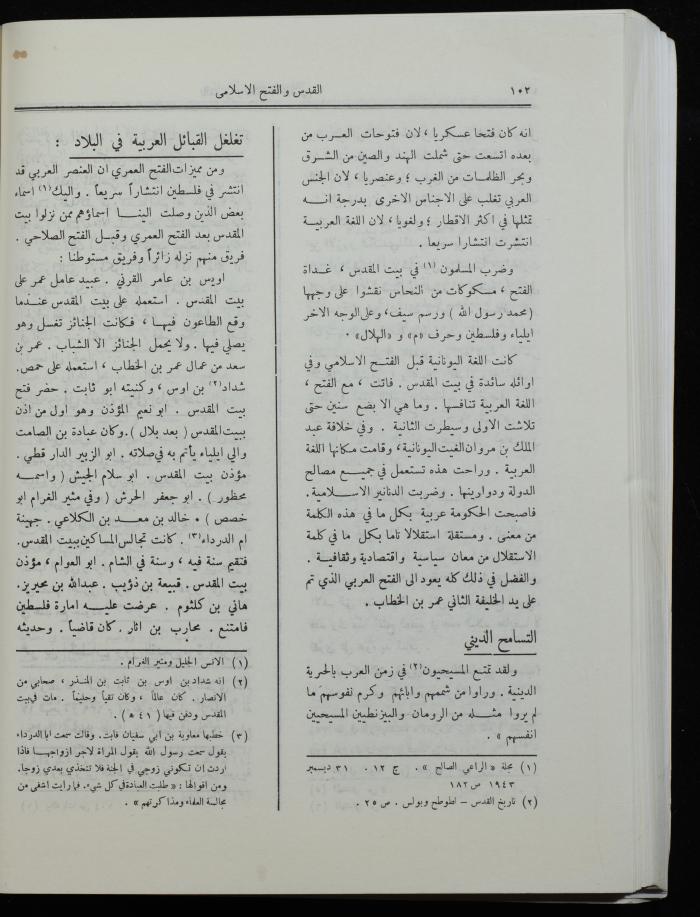 ١٠٢
القدس والفتح الاسلامي
انه كان فتحا عسكريا ، لان فتوحات العرب من
بعده اتسعت حتى شملت الهند والصين من الشرق
وبحر الظلمات من الغرب ؛ وعنصريا ، لان الجنس
العربي تغلب على الاجناس الاخرى بدرجة انه
تمثلها في اكثر الاقطار ؛ ولغويا ، لان اللغة العربية
انتشرت انتشارا سريعا .
وضرب المسلمون (١) في بيت المقدس ، غداة
الفتح ، مسكوكات من النحاس نقشوا على وجهها
( محمد رسول الله ) ورسم سيف، وعلى الوجه الاخر
ايلياء وفلسطين وحرف «م» و «الهلال» .
كانت اللغة اليونانية قبل الفتح الاسلامي وفي
اوائله سائدة في بيت المقدس . فاتت ، مع الفتح ،
اللغة العربية تنافسها . وما هي الا بضع سنين حتى
تلاشت الاولى وسيطرت الثانية . وفي خلافة عبد
الملك بن مروان الغيت اليونانية، وقامت مكانها اللغة
العربية . وراحت هذه تستعمل في جميع مصالح
الدولة ودواوينها . وضربت الدنانير الاسلامية .
فاصبحت الحكومة عربية بكل ما في هذه الكلمة
من معنى . ومستقلة استقلالا تاما بكل ما في كلمة
الاستقلال من معان سياسية واقتصادية وثقافية .
والفضل في ذلك كله يعود الى الفتح العربي الذي تم
على يد الخليفة الثاني عمر بن الخطاب .
التسامح الديني
ولقد تمتع المسيحيون (٢) في زمن العرب بالحرية
الدينية . وراوا من شممهم وابائهم وكرم نفوسهم ما
لم يروا مثله من الرومان والبيزنطيين المسيحيين
انفسهم » .
(١) مجلة « الراعي الصالح » . ج ١٢ . ٣١ ديسمبر
١٩٤٣ ص ١٨٢
(٢) تاريخ القدس – لطوطح وبولس . ص ٢٥ .
تغلغل القبائل العربية في البلاد :
ومن مميزات الفتح العمري ان العنصر العربي قد
انتشر في فلسطين انتشاراً سريعاً . واليك (١) اسماء
بعض الذين وصلت الينا اسماؤهم ممن نزلوا بيت
المقدس بعد الفتح العمري وقبل الفتح الصلاحي .
فريق منهم نزله زائراً وفريق مستوطنا :
اويس بن عامر القرني . عبيد عامل عمر على
بيت المقدس . استعمله على بيت المقدس عندما
وقع الطاعون فيها ، فكانت الجنائز تغسل وهو
يصلي فيها . ولا يحمل الجنائز الا الشباب . عمر بن
سعد من عمال عمر بن الخطاب ، استعمله على حمص.
شداد (٢) بن اوس ، وكنيته ابو ثابت . حضر فتح
بيت المقدس . ابو نعيم المؤذن وهو اول من اذن
ببيت المقدس ( بعد بلال ) . وكان عبادة بن الصامت
والي ايلياء يأتم به في صلاته . ابو الزبير الدار قطي .
مؤذن بيت المقدس . ابو سلام الجيش ( واسمه
محظور ) . ابو جعفر الحرش ( وفي مثير الغرام ابو
خصص ) . خالد بن معد بن الكلاعي . جهينة
ام الدرداء (٣) . كانت تجالس المساكين ببيت المقدس.
فتقيم سنة فيه ، وسنة في الشام . ابو العوام ، مؤذن
بيت المقدس . قبيعة بن ذؤيب . عبدالله بن محيريز.
هاني بن كلثوم . عرضت عليه امارة فلسطين
فامتنع . محارب بن اثار . كان قاضياً . وحديثه
(١) الانس الجليل ومثير الغرام .
(٢) انه شداد بن اوس بن ثابت بن المنذر ، صحابي من
الانصار . كان عالماً ، وكان تقياً وحليماً . مات في بيت
المقدس ودفن فيها ( ٤١ ﻫ ) .
(٣) خطبها معاوية بن ابي سفيان فابت . وقالت سمعت ابا الدرداء
يقول سمعت رسول الله يقول المراة لاخر ازواجها فاذا
اردت ان تكوني زوجي في الجنة فلا تتخذي بعدي زوجا.
ومن اقوالها : « طلبت العبادة في كل شيء. فما رايت اشفى من
مجالسة العلماء ومذاكرتهم » .